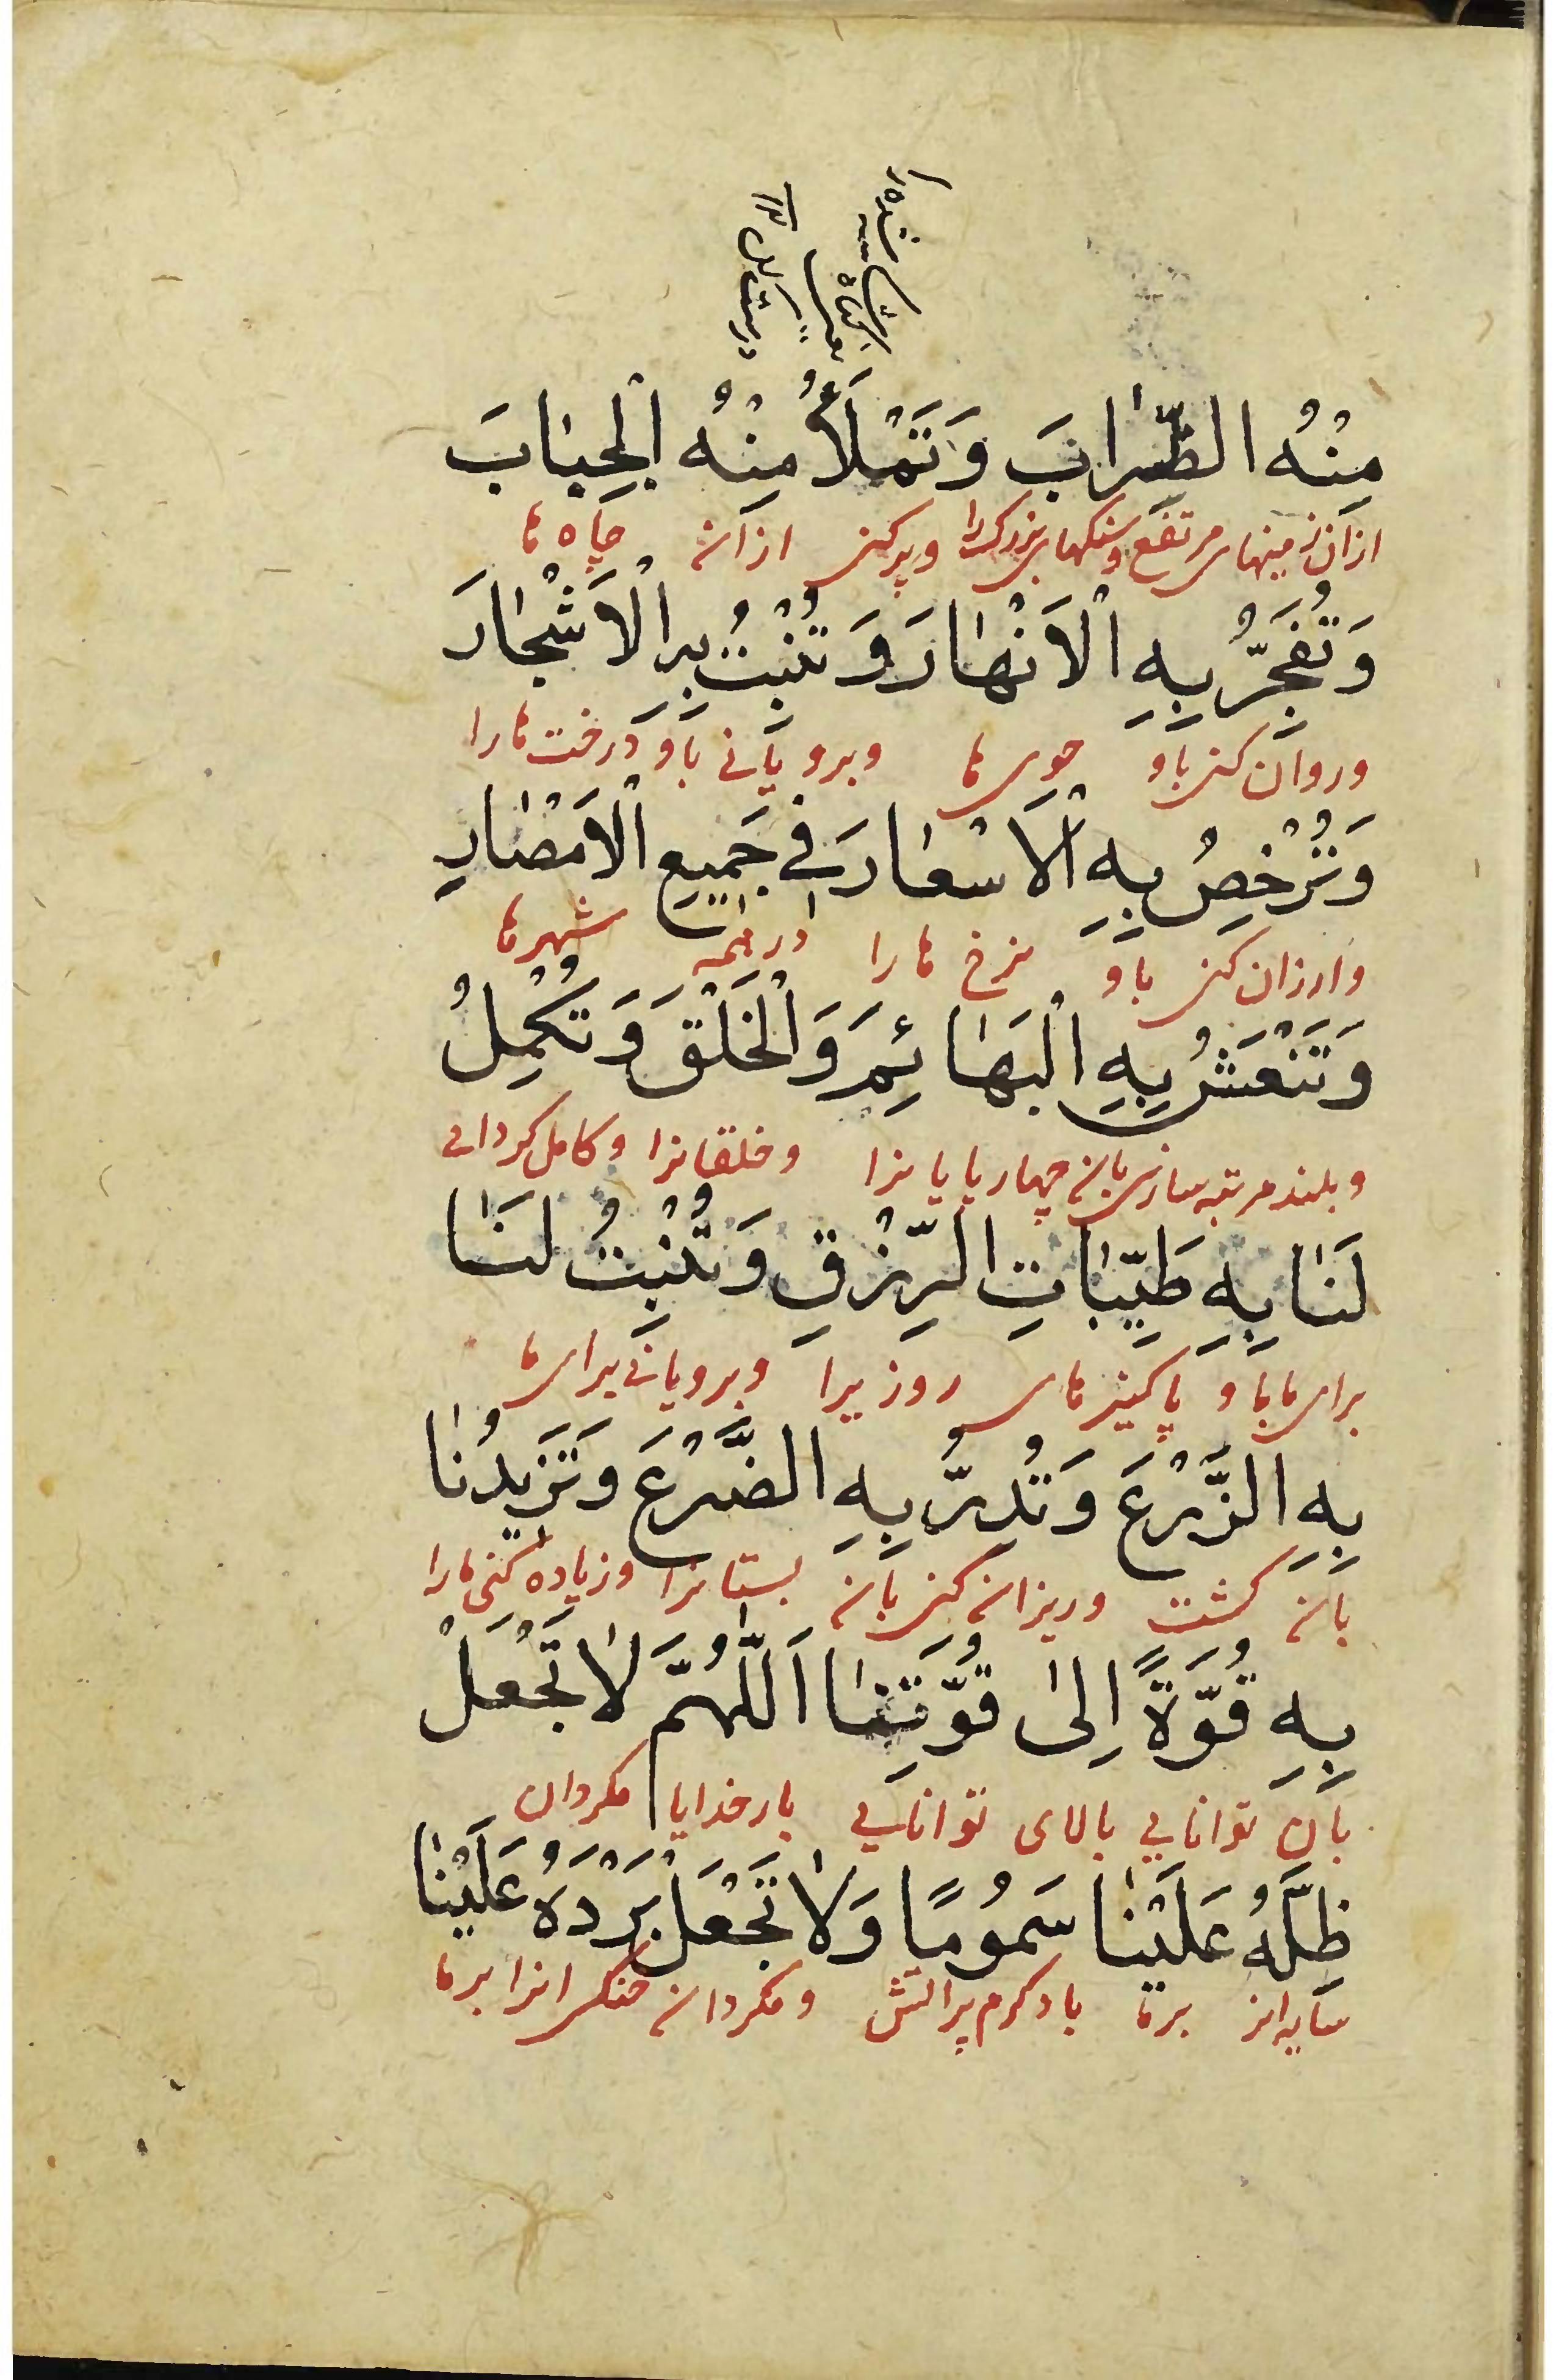 مِنْهُ الظِّرَابَ وَتَمْلَأُ مِنْهُ الْجِبَابَ
ازان زمینهای مرتفع و سنکهای بزرک را و پر کنی ازان چاه ها
وَتُفَجِّرُ بِهِ الْاَنْهَارَ وَتُنْبِتُ بِهِ الْاَشْجَارَ
و روان کنی باو جوی ها و برویانی باو درخت ها را
وَتُرْخِصُ بِهِ الْاَسْعَارَ فِي جَمِيعِ الْاَمْصَارِ
و ارزان کنی باو نرخ ها را در همه شهرها
وَتَنْعَشُ بِهِ الْبَهَائِمَ وَالْخَلْقَ وَتُكْمِلُ
و بلند مرتبه سازی بان چهار پایانرا و خلقانرا و کامل کردانی
لَنَا بِهِ طَيِّبَاتِ الرِّزْقِ وَتُنْبِتُ لَنَا
برای ما باو پاکیزهای روزیرا و برویانی برای ما
بِهِ الزَّرْعَ وَتُدِرُّ بِهِ الضَّرْعَ وَتَزِيدُنَا
بان کشت و ریزان کنی بان پستانرا و زیاده کنی مارا
بِهِ قُوَّةً اِلىٰ قُوَّتِنَا اَللّٰهُمَّ لَا تَجْعَلْ
بان توانایی بالای توانایی بار خدایا مکردان
ظِلَّهُ عَلَيْنَا سَمُومًا وَلَا تَجْعَلْ بَرْدَهُ عَلَيْنَا
سایه انرا بر ما باد کرم پر اتش و مکردان خنکی انرا بر ما